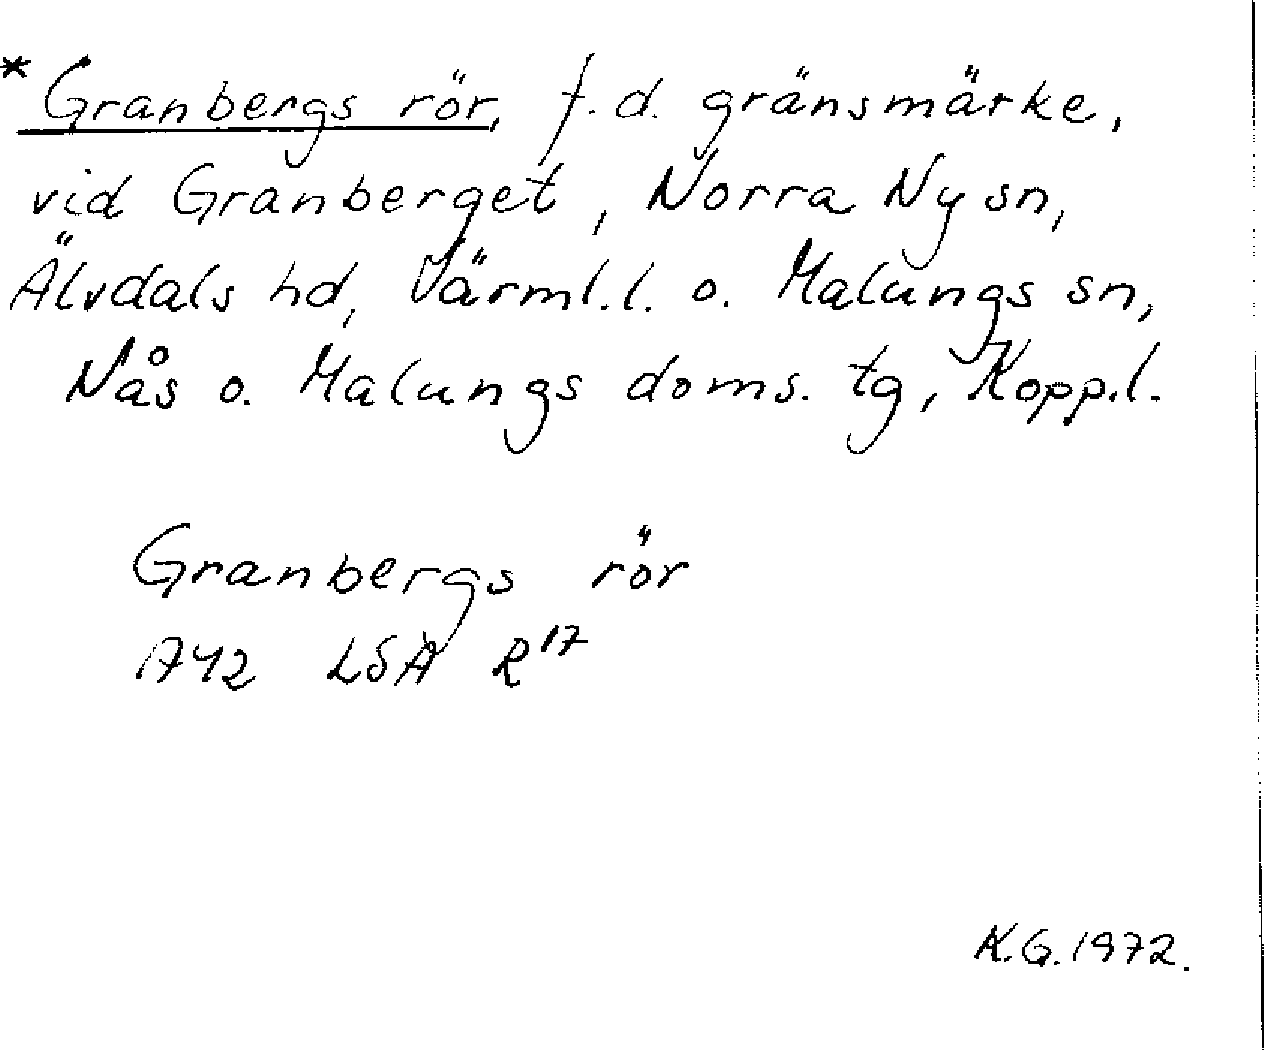 * Granbergs rör, f.d. gränsmärke,
vid Granberget, Norra Ny sn,
Älvdals hd, Värml.l. o. Malungs sn,
Nås o. Malungs doms. tg, Kopp.l.
Granbergs rör
1742 LSA R17
K.G. 1972.